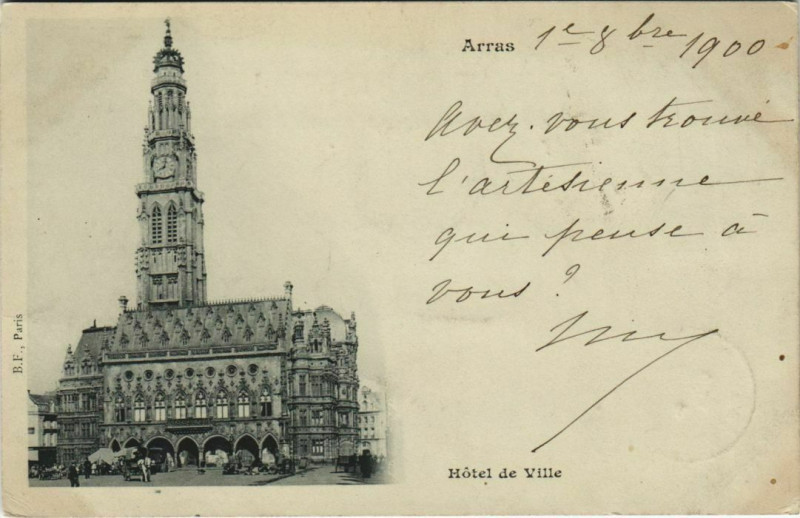 Arras 1e 8bre 1900
Avez-vous trouvé
l'artésienne
qui pense à
vous?
Hôtel de Ville
B.F., Paris